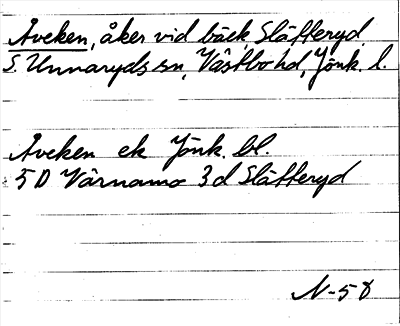 Aveken, åker vid bäck, Slätteryd
S. Unnaryds sn, Västbo hd, Jönk. l.
Aveken ek Jönk. bl.
5D Värnamo 3d Slätteryd
N-58